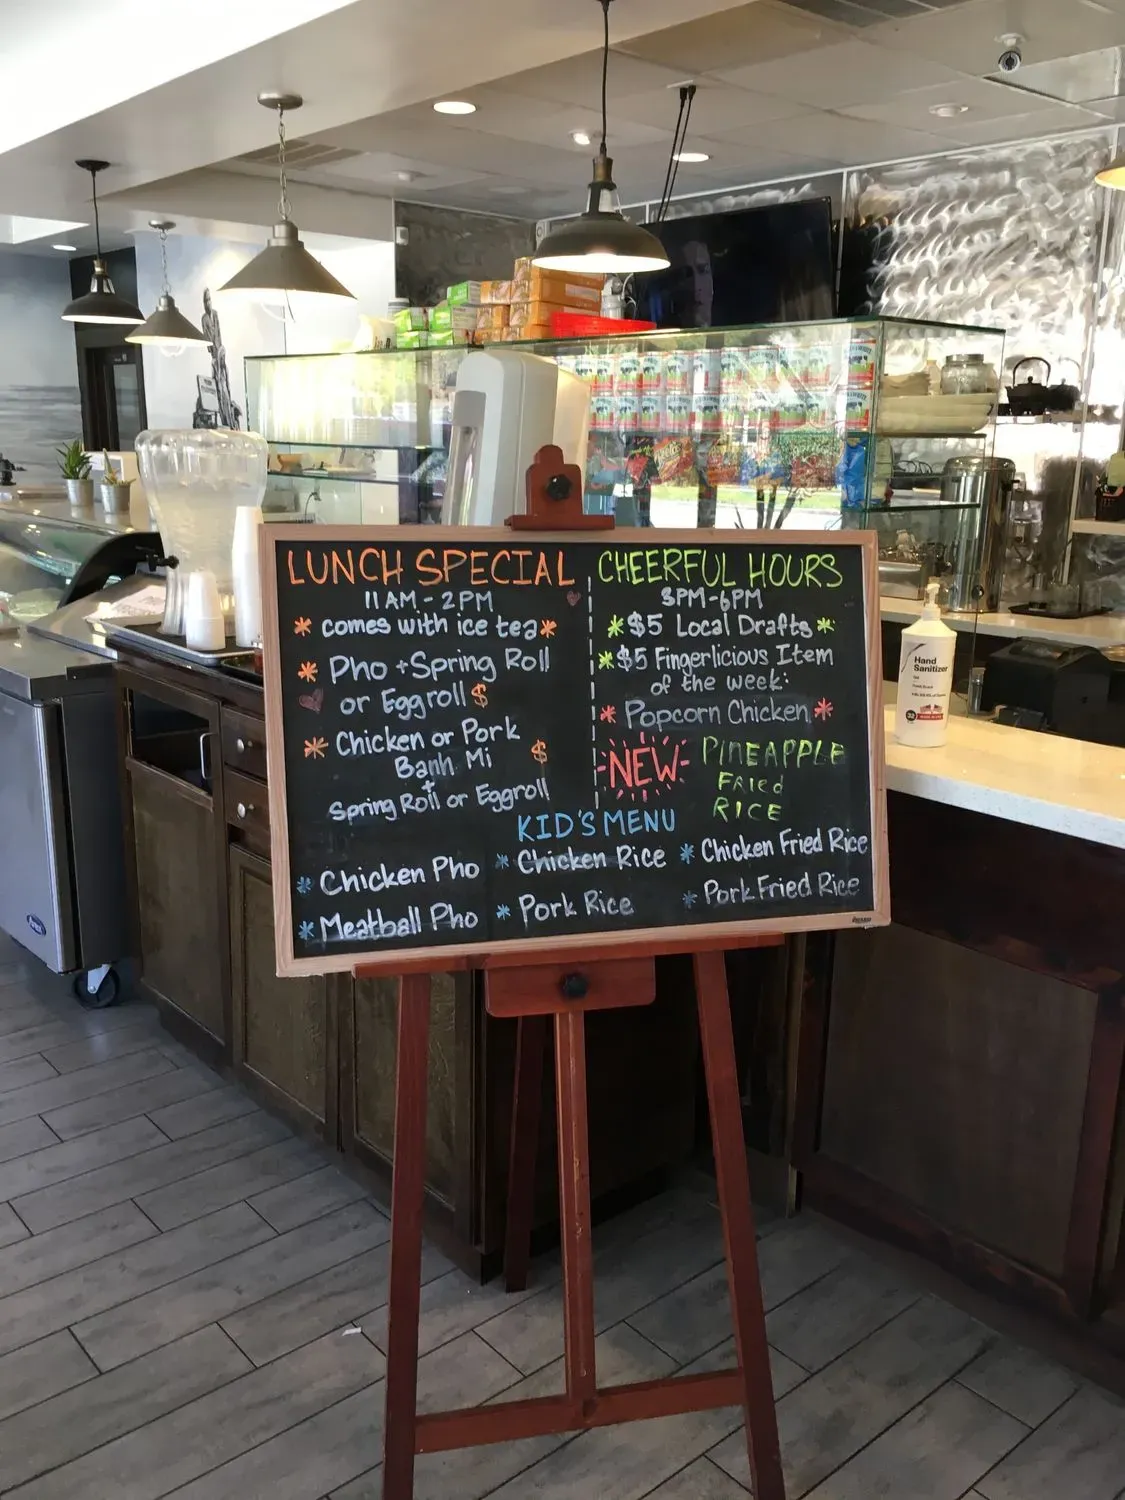 LUNCH SPECIAL
11 AM - 2 PM
* comes with ice tea *
* Pho + Spring Roll
or Eggroll $
* Chicken or Pork $
Banh Mi
+
Spring Roll or Eggroll
CHEERFUL HOURS
3PM-6PM
* $5 Local Drafts *
* $5 Fingerlicious Item
of the week:
* Popcorn Chicken *
-NEW-
PINEAPPLE
FRIed
RICE
KID'S MENU
* Chicken Pho
* Meatball Pho
* Chicken Rice
* Pork Rice
* Chicken Fried Rice
* Pork Fried Rice
Hand
Sanitizer